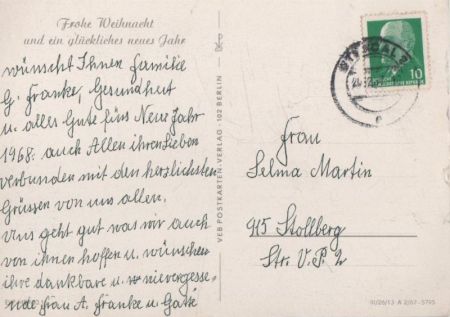 Frohe Weihnacht
und ein glückliches neues Jahr
wünscht Ihnen familie
G. Franke, Gesundheit
u. alles Gute fürs Neue Jahr
1968. auch Allen ihren Lieben
verbunden mit den herzlichsten
Grüssen von uns allen.
Uns geht gut was wir auch
von ihnen hoffen u. wünschen
ihre dankbare u. nievergesse-
nde frau A. Franke u. Gatte
VEB POSTKARTEN-VERLAG · 102 BERLIN
10
Frau
Selma Martin
915 Stollberg
Str. V. P. 2
III/26/13 A 2/67 5795